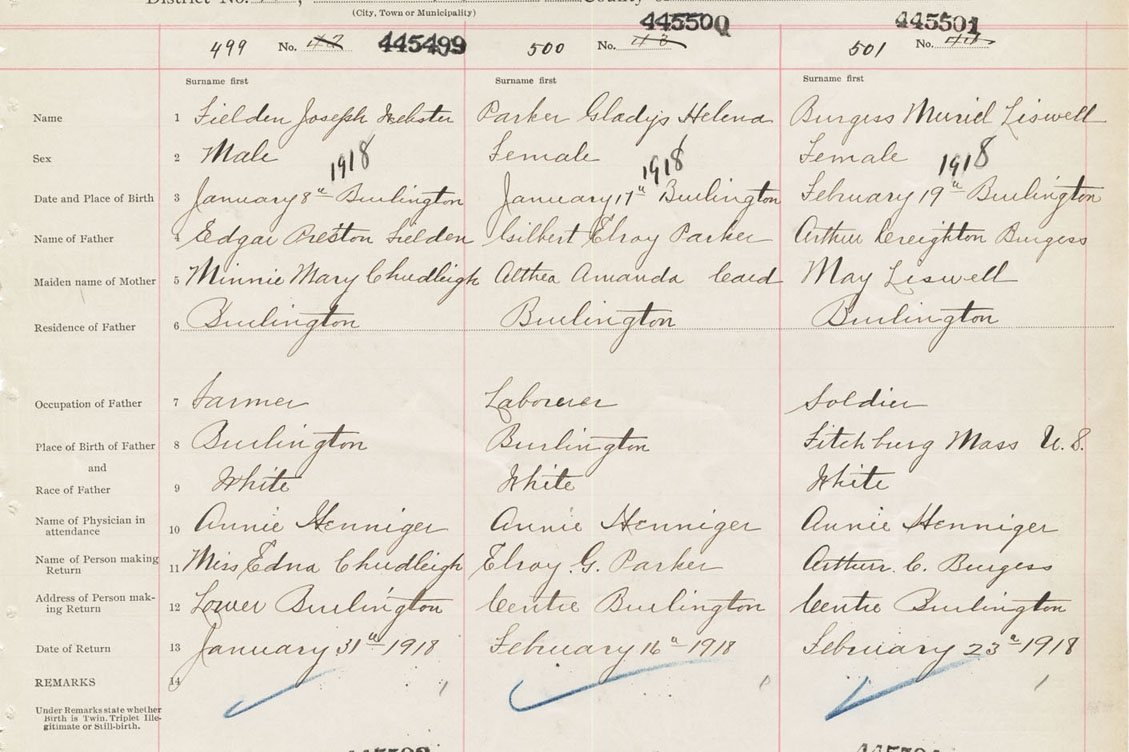 District No.
(City, Town or Municipality)
499 No. 42 445499 500 No. 43 44550Q 501 No. 44 445501
Surname first Surname first Surname first
Name 1 Fielden Joseph Webster Parker Gladys Helena Burgess Muriel Liswell
Sex 2 Male Female Female
1918 1918 1918
Date and Place of Birth 3 January 8" Burlington January 17" Burlington February 19" Burlington
Name of Father 4 Edgar Preston Fielden Gilbert Elroy Parker Arthur Creighton Burgess
Maiden name of Mother 5 Minnie Mary Chudleigh Althea Amanda Card May Liswell
Residence of Father 6 Burlington Burlington Burlington
Occupation of Father 7 Farmer Laborerer Soldier
Place of Birth of Father 8 Burlington Burlington Fitchburg Mass U.S.
and
Race of Father 9 White White White
Name of Physician in
attendance 10 Annie Henniger Annie Henniger Annie Henniger
Name of Person making
Return 11 Miss Edna Chudleigh Elroy G. Parker Arthur C. Burgess
Address of Person mak-
ing Return 12 Lower Burlington Centre Burlington Centre Burlington
Date of Return 13 January 31" 1918 February 16" 1918 February 23" 1918
REMARKS 14
Under Remarks state whether
Birth is Twin. Triplet Ille-
gitimate or Still-birth.